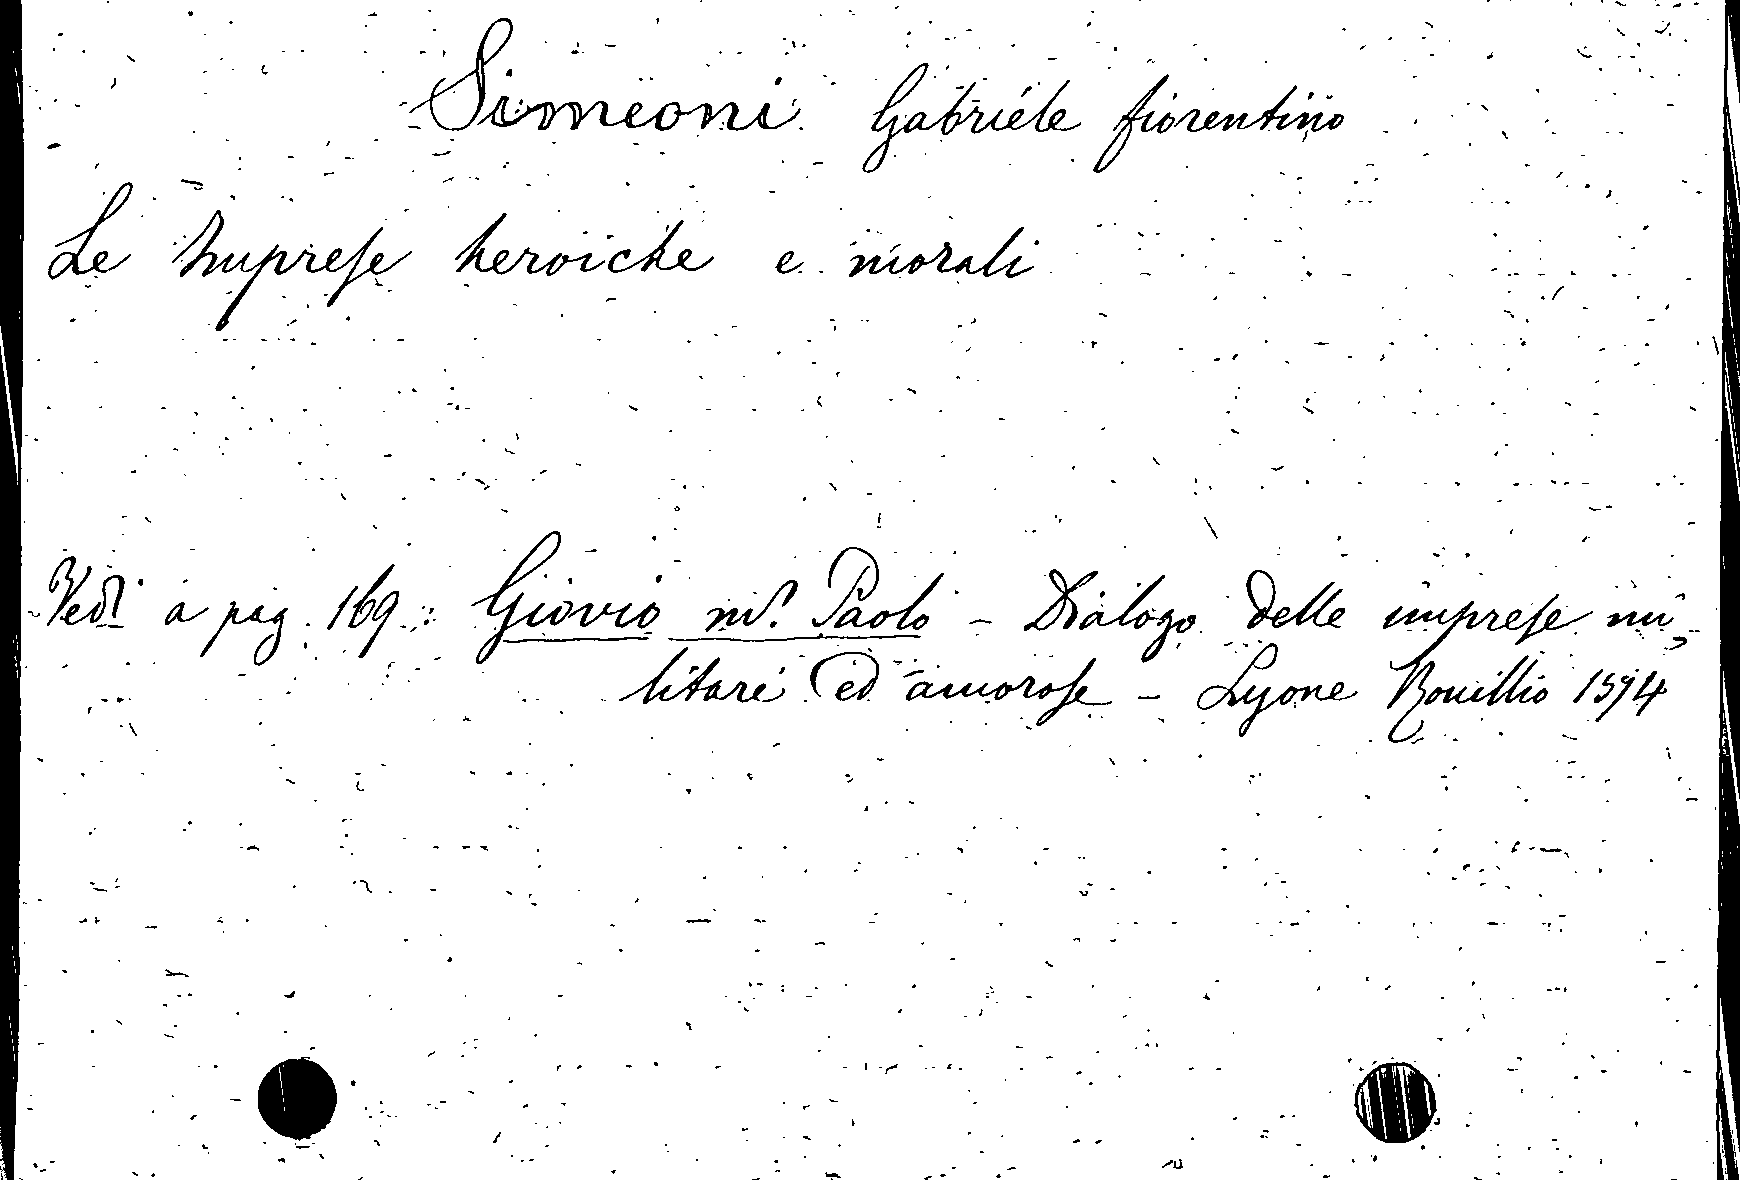 Simeoni Gabriele fiorentino
Le Imprese heroiche e morali
Vedi a pag. 169: Giovio mr. Paolo - Dialogo delle imprese mi-
litari ed amorose - Lyone Rouillio 1574